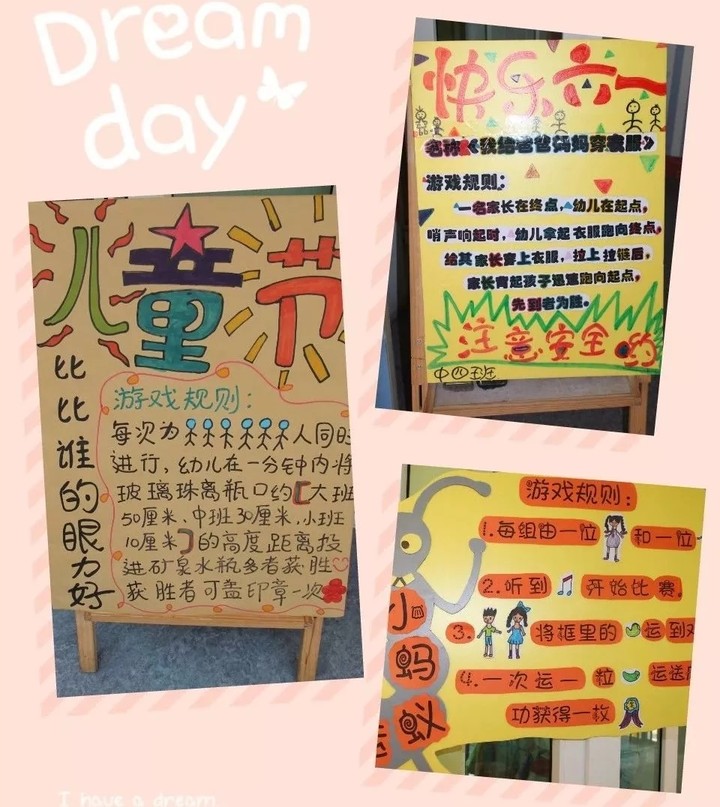 Dream
day
快乐六一
名称:《我给爸爸妈妈穿衣服》
游戏规则:
一名家长在终点,幼儿在起点,
哨声响起时,幼儿拿起衣服跑向终点,
给其家长穿上衣服,拉上拉链后,
家长背起孩子迅速跑向起点,
先到者为胜。
注意安全
中四班
儿童节
比比谁的眼力好
游戏规则:
每次为人同时
进行,幼儿在一分钟内将
玻璃珠离瓶口约[大班
50厘米、中班30厘米,小班
10厘米]的高度距离投
进矿泉水瓶多者获胜
获胜者可盖印章一次
游戏规则:
1.每组由一位和一位
2.听到开始比赛。
3.将框里的运到
4.一次运一粒运送
功获得一枚
小蚂蚁
运
I have a dream